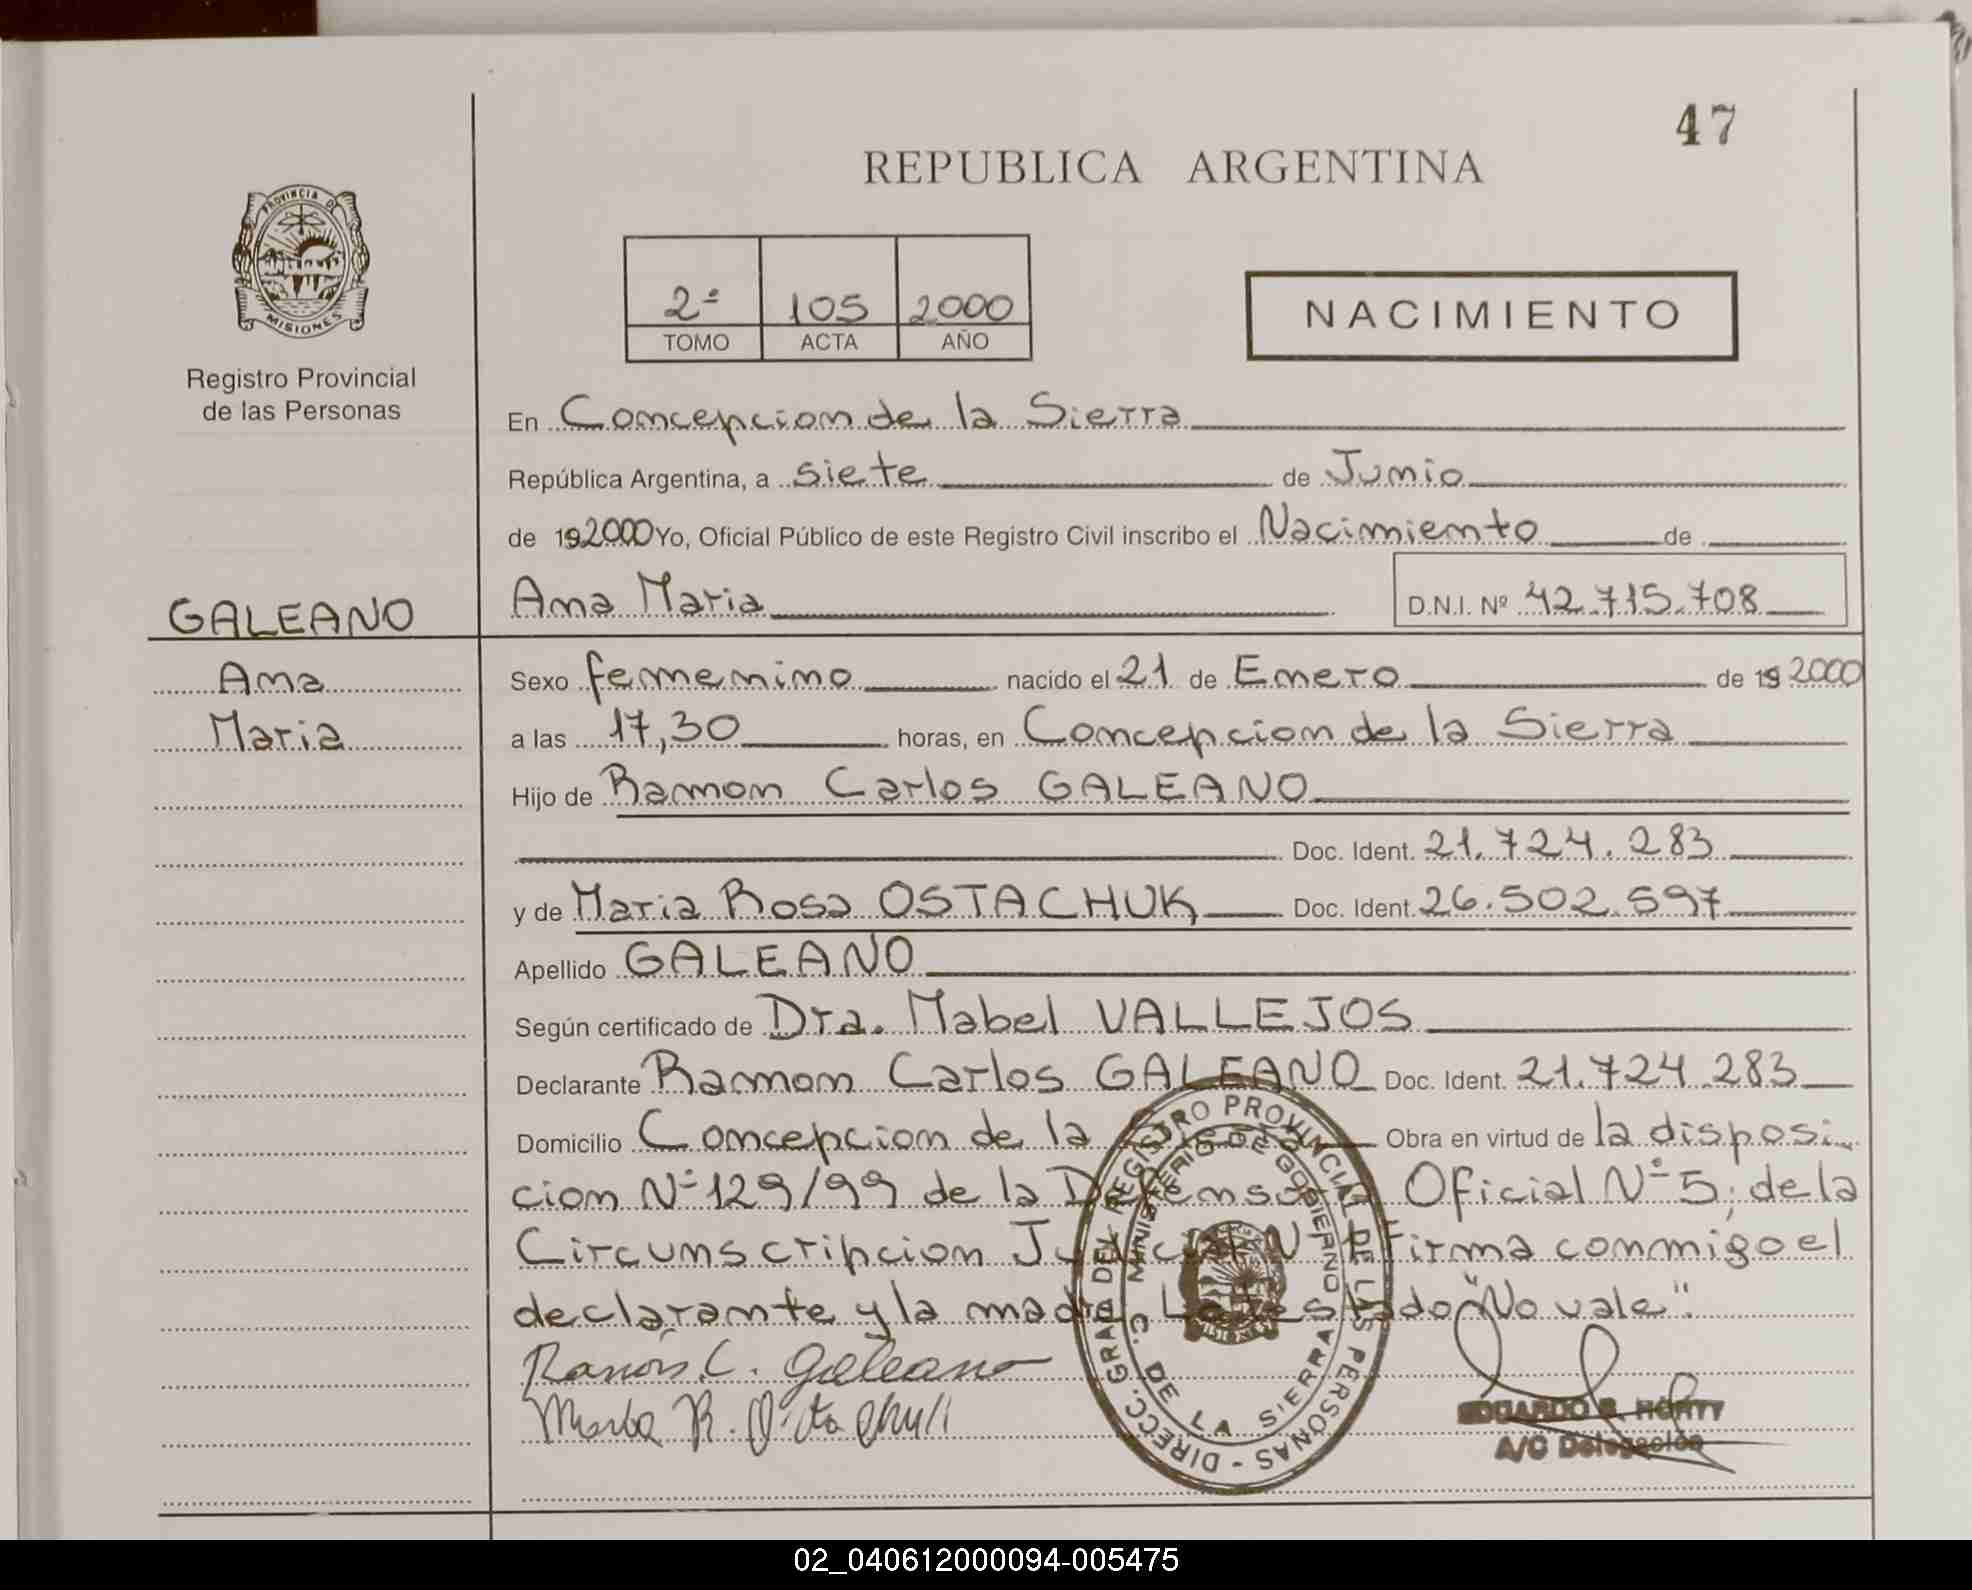 47
REPUBLICA ARGENTINA
PROVINCIA DE
MISIONES
Registro Provincial
de las Personas
2º 105 2000
TOMO ACTA AÑO
NACIMIENTO
En Concepcion de la Sierra
República Argentina, a siete de Junio
de 192000 Yo, Oficial Público de este Registro Civil inscribo el Nacimiento de
GALEANO
Ana Maria
D.N.I. Nº 42.715.708
Ana
Maria
Sexo femenino nacido el 21 de Enero de 19 2000
a las 17,30 horas, en Concepcion de la Sierra
Hijo de Ramon Carlos GALEANO
Doc. Ident. 21.724.283
y de Maria Rosa OSTACHUK Doc. Ident. 26.502.597
Apellido GALEANO
Según certificado de Dra. Mabel VALLEJOS
Declarante Ramon Carlos GALEANO Doc. Ident. 21.724.283
Domicilio Concepcion de la Sierra Obra en virtud de la disposi
cion Nº 129/99 de la Defensoria Oficial Nº 5, de la
Circunscripcion Judicial Nº firma conmigo el
declarante y la madre Lo testado "No vale".
Ramón C. Galeano
Maria R. Ostachuk
DIRECC. GRAL DEL REGISTRO PROVINCIAL DE LAS PERSONAS -
MINISTERIO DE GOBIERNO
C. DE LA SIERRA
EDUARDO R. HORTY
A/C Delegación
02_040612000094-005475